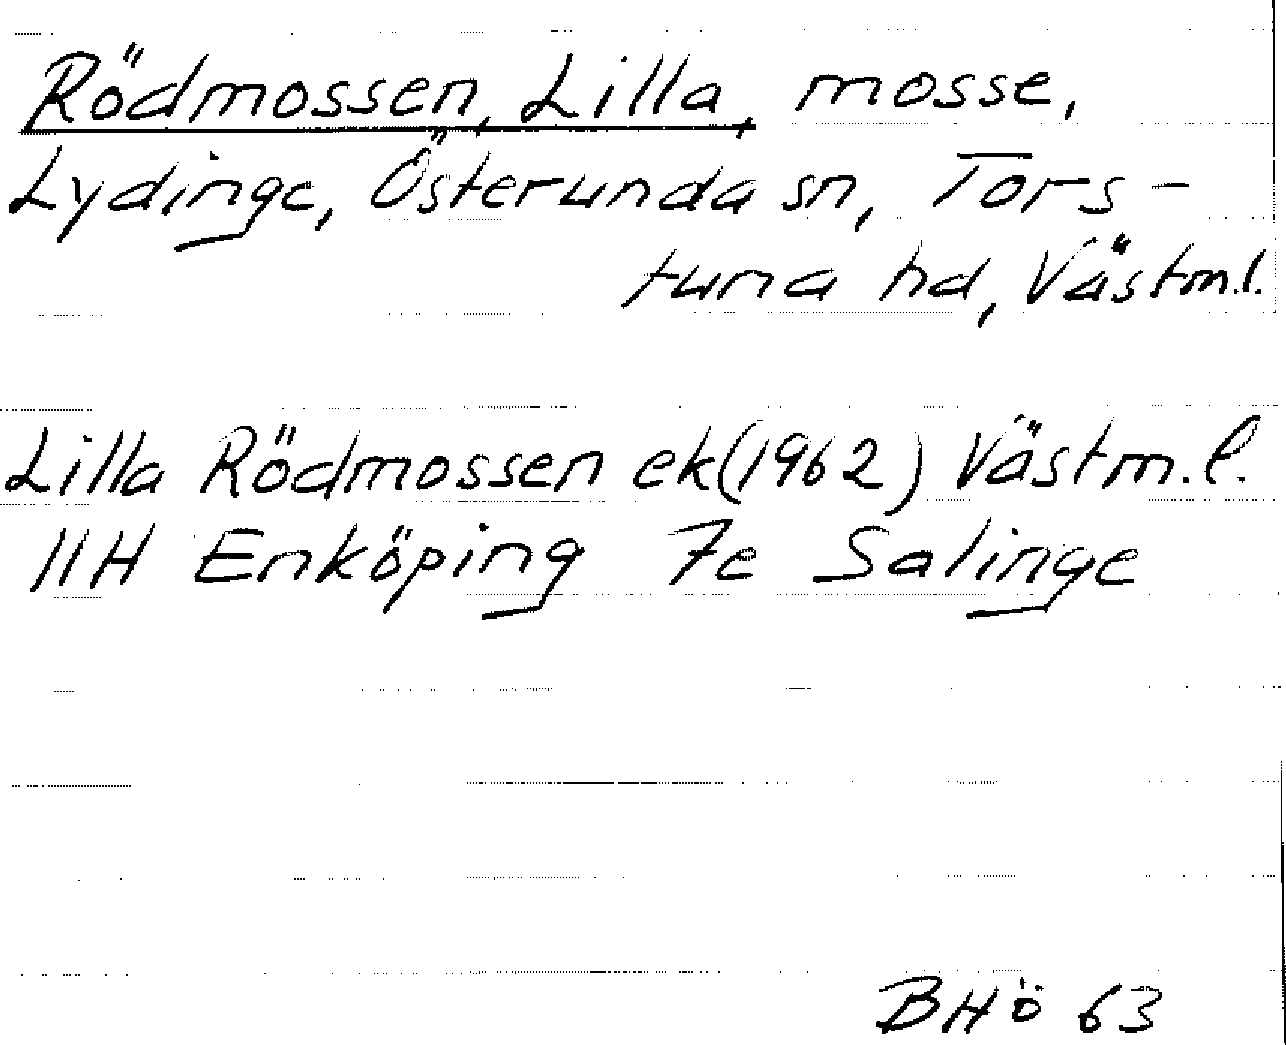 Rödmossen, Lilla, mosse,
Lydinge, Österunda sn, Tors-
tuna hd, Västm.l.
Lilla Rödmossen ek(1962) Västm.l.
11H Enköping 7e Salinge
BHö 63